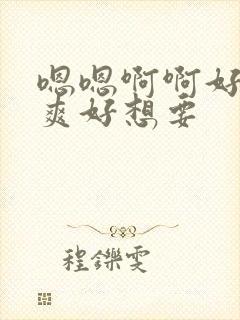 嗯嗯啊啊好
爽好想要
程鑠雯